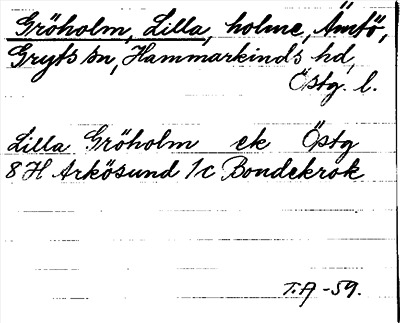 Gröholm, Lilla, holme, Ämtö,
Gryts sn, Hammarkinds hd,
Östg. l.
Lilla Gröholm ek Östg
8 H Arkösund 1/c Bondekrok
T.A -59.